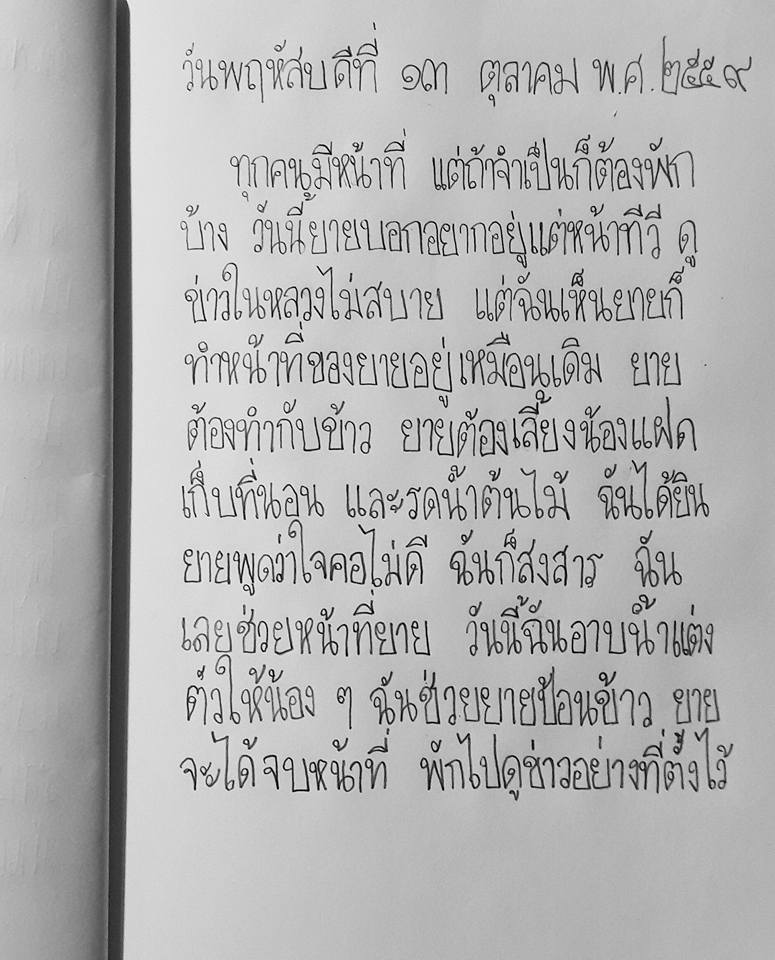 วันพฤหัสบดีที่ ๑๓ ตุลาคม พ.ศ. ๒๕๕๙
ทุกคนมีหน้าที่ แต่ถ้าจำเป็นก็ต้องพัก
บ้าง วันนี้ยายบอกอยากอยู่แต่หน้าทีวี ดู
ข่าวในหลวงไม่สบาย แต่ฉันเห็นยายก็
ทำหน้าที่ของยายอยู่เหมือนเดิม ยาย
ต้องทำกับข้าว ยายต้องเลี้ยงน้องแฝด
เก็บที่นอน และรดน้ำต้นไม้ ฉันได้ยิน
ยายพูดว่าใจคอไม่ดี ฉันก็สงสาร ฉัน
เลยช่วยหน้าที่ยาย วันนี้ฉันอาบน้ำแต่ง
ตัวให้น้อง ๆ ฉันช่วยยายป้อนข้าว ยาย
จะได้จบหน้าที่ พักไปดูข่าวอย่างที่ตั้งไว้